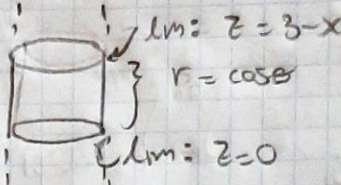 lm: z = 3-x
r = cosθ
lm: z=0